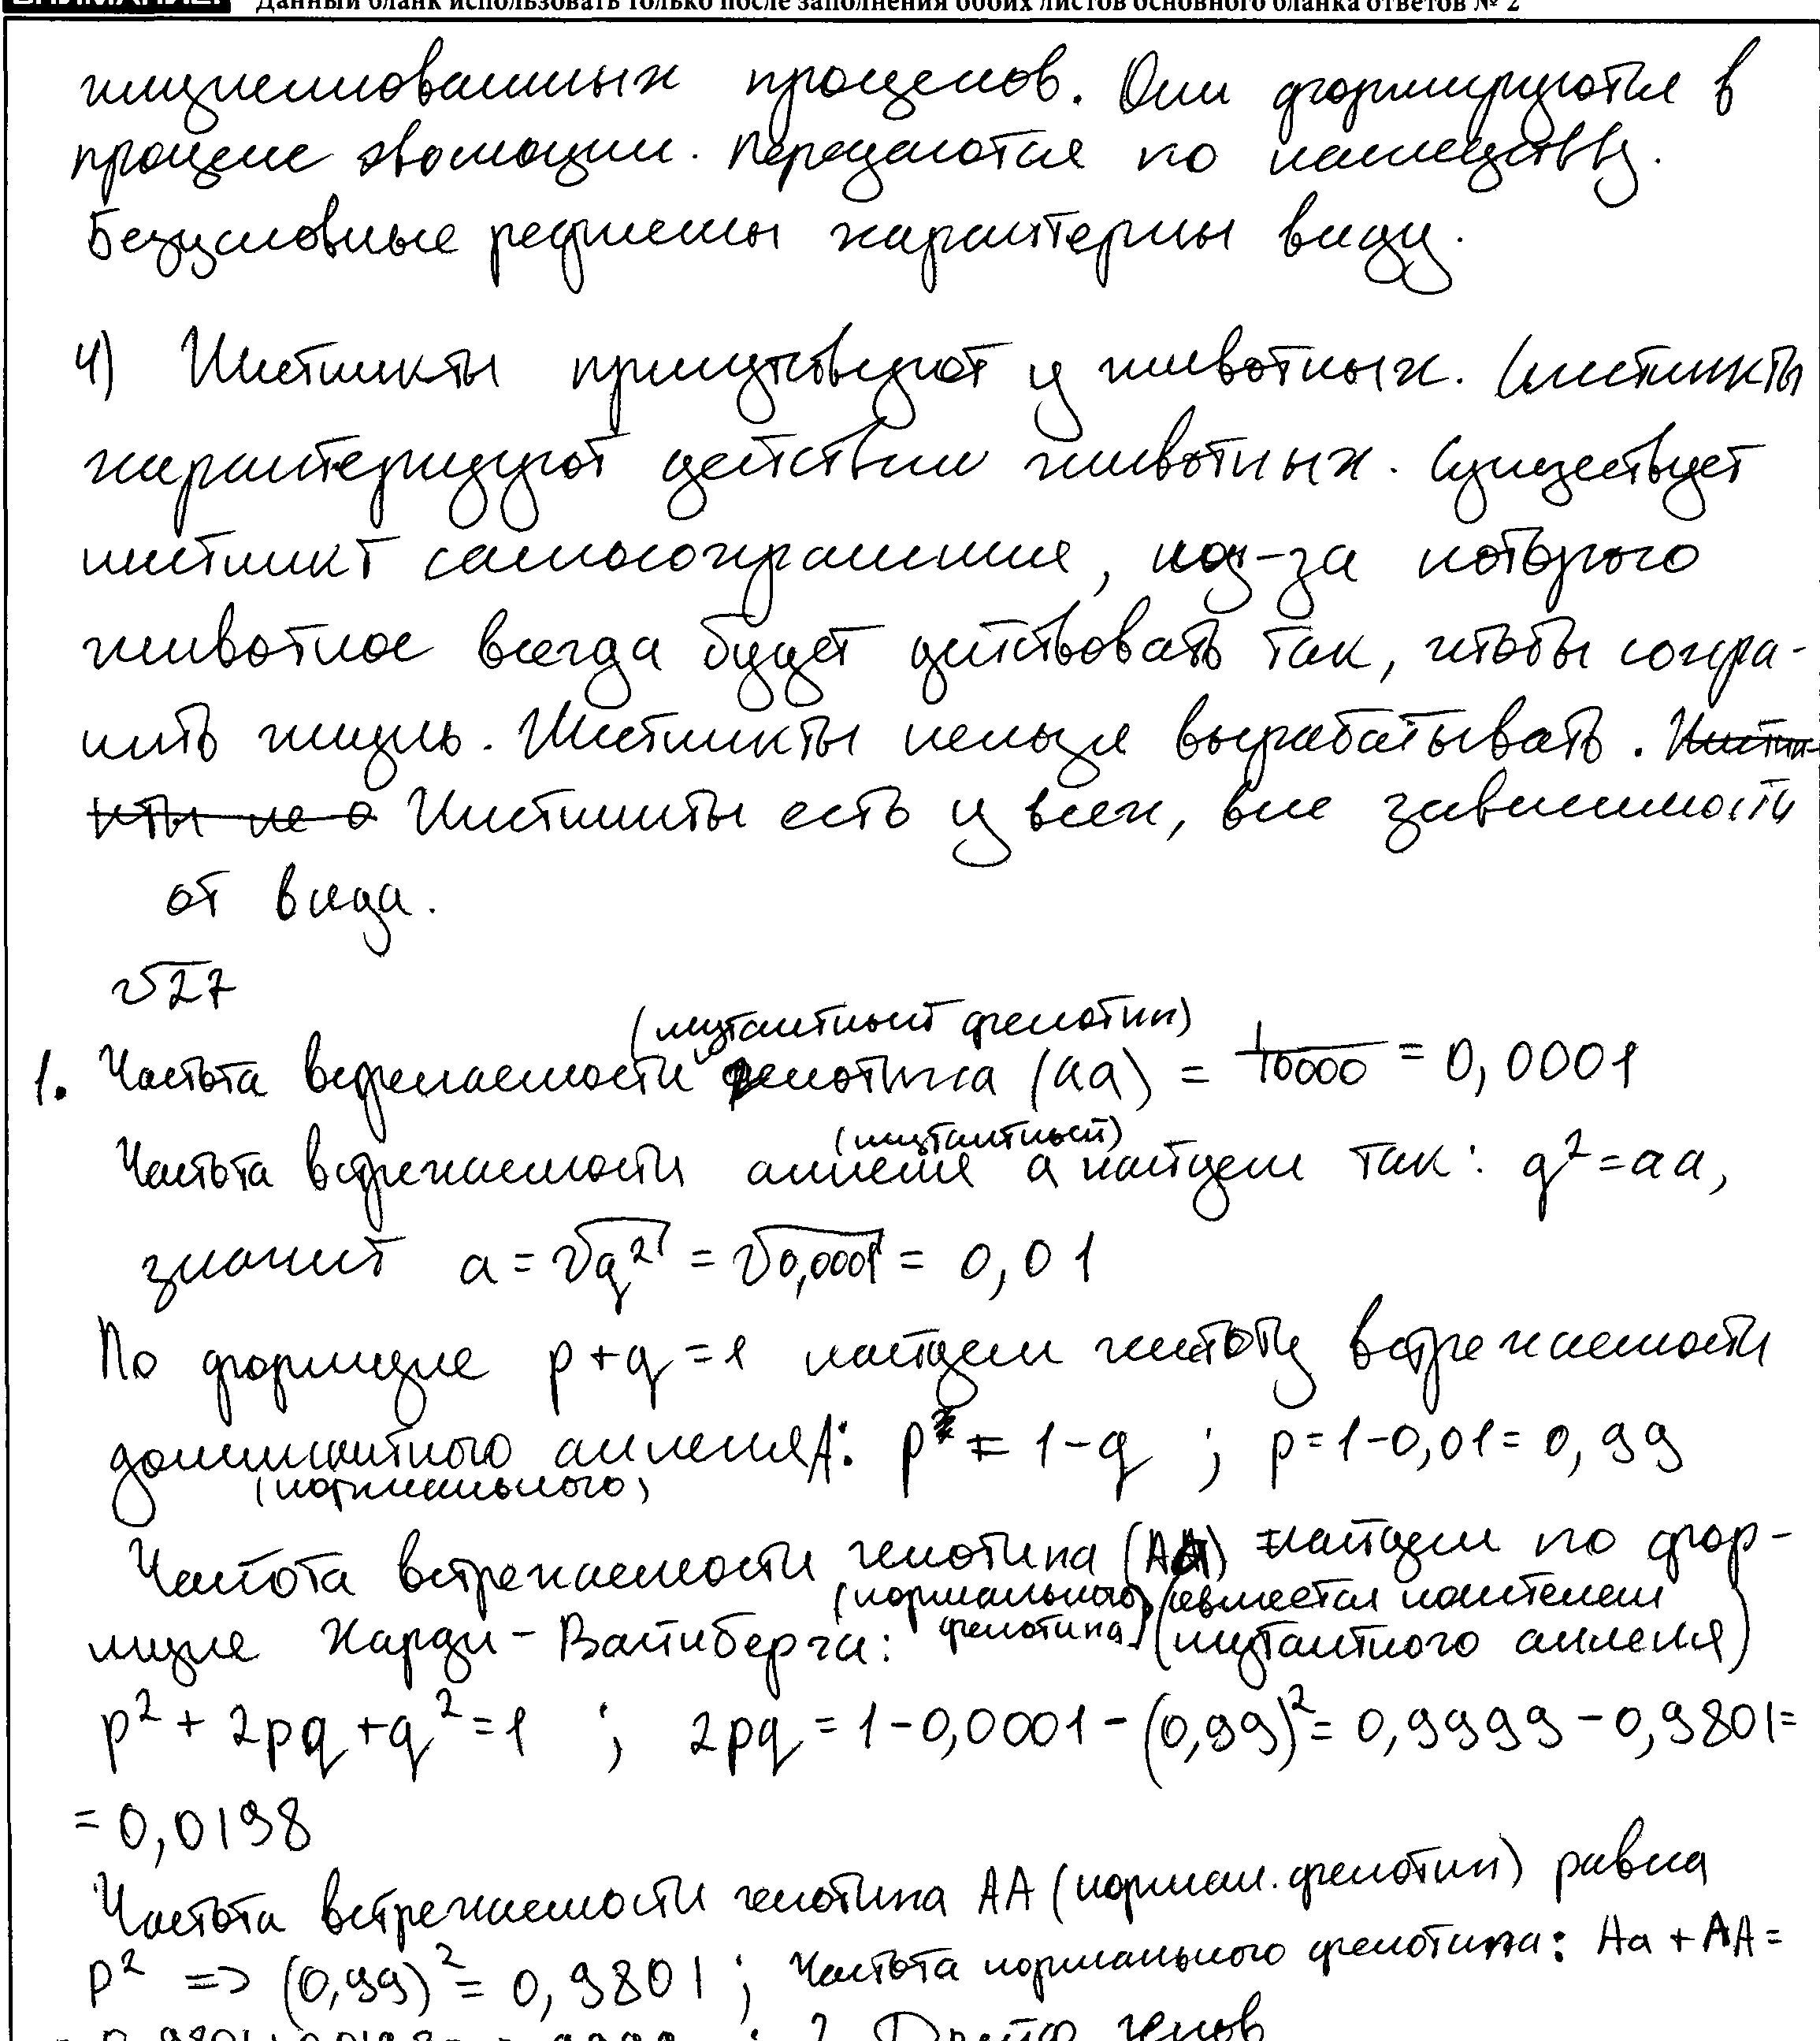 Данный бланк использовать только после заполнения обоих листов основного бланка ответов № 2
процессов. Они формируются в
процессе эволюции. Передаются по наследству.
Безусловные рефлексы характерны виду.
4) Инстинкты присутствуют у животных. Инстинкты
характеризуют действия животных. Существует
инстинкт самосохранения, из-за которого
животное всегда будет действовать так, чтобы сохра-
нить жизнь. Инстинкты нельзя вырабатывать. Инстин-
кты не о Инстинкты есть у всех, вне зависимости
от вида.
√27
(мутантный фенотип)
1. Частота встречаемости генотипа (аа) = 1/10000 = 0,0001
(мутантный)
Частота встречаемости аллеля а найдем так: q² = аа,
значит а = √q² = √0,0001 = 0,01
По формуле p + q = 1 найдем частоту встречаемости
доминантного аллеля А: p = 1 - q ; p = 1 - 0,01 = 0,99
(нормального)
Частота встречаемости генотипа (Аа) найдем по фор-
(нормального (является носителем
муле Харди - Вайнберга: фенотипа) (мутантного аллеля)
p² + 2pq + q² = 1 ; 2pq = 1 - 0,0001 - (0,99)² = 0,9999 - 0,9801 =
= 0,0198
Частота встречаемости генотипа АА (нормал. фенотип) равна
p² => (0,99)² = 0,9801 ; Частота нормального фенотипа: Аа + АА =
2 Дрейф генов